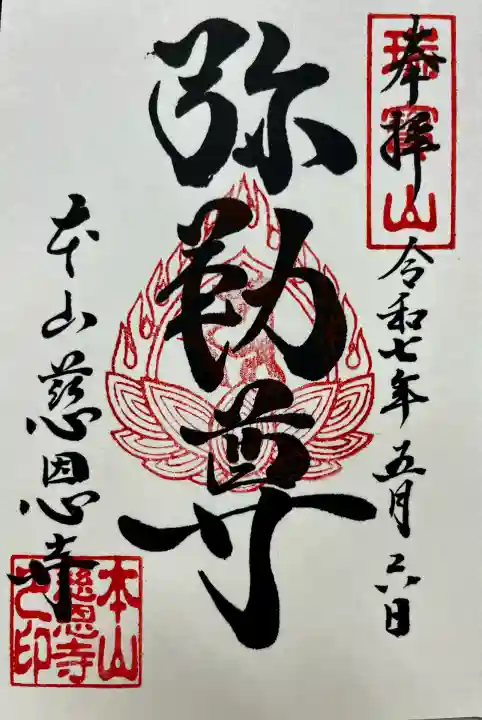 奉拝
瑞宝山
令和七年五月六日
弥勒尊
本山慈恩寺
本山
慈恩寺
之印